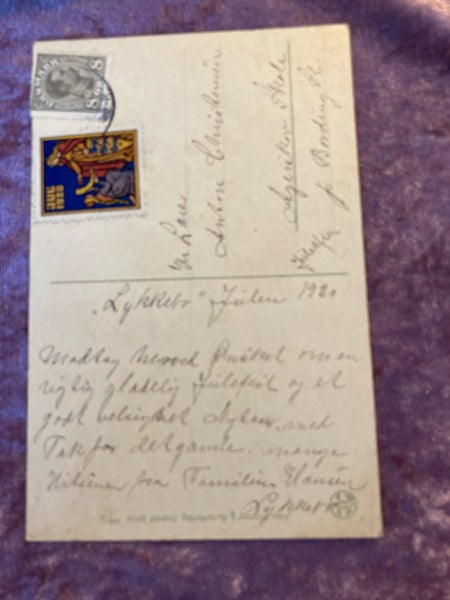 DANMARK
8 8
JUL
1920
Hr. Lærer
Anton Christensen
Skole
pr. Bording St.
„Lykkebo“ Julen 1920
Modtag herved Ønsket om en
rigtig glædelig Julefest og et
godt velsignet Nytaar, med
Tak for det gamle. mange
Hilsener fra Familien Hansen
Lykkebo